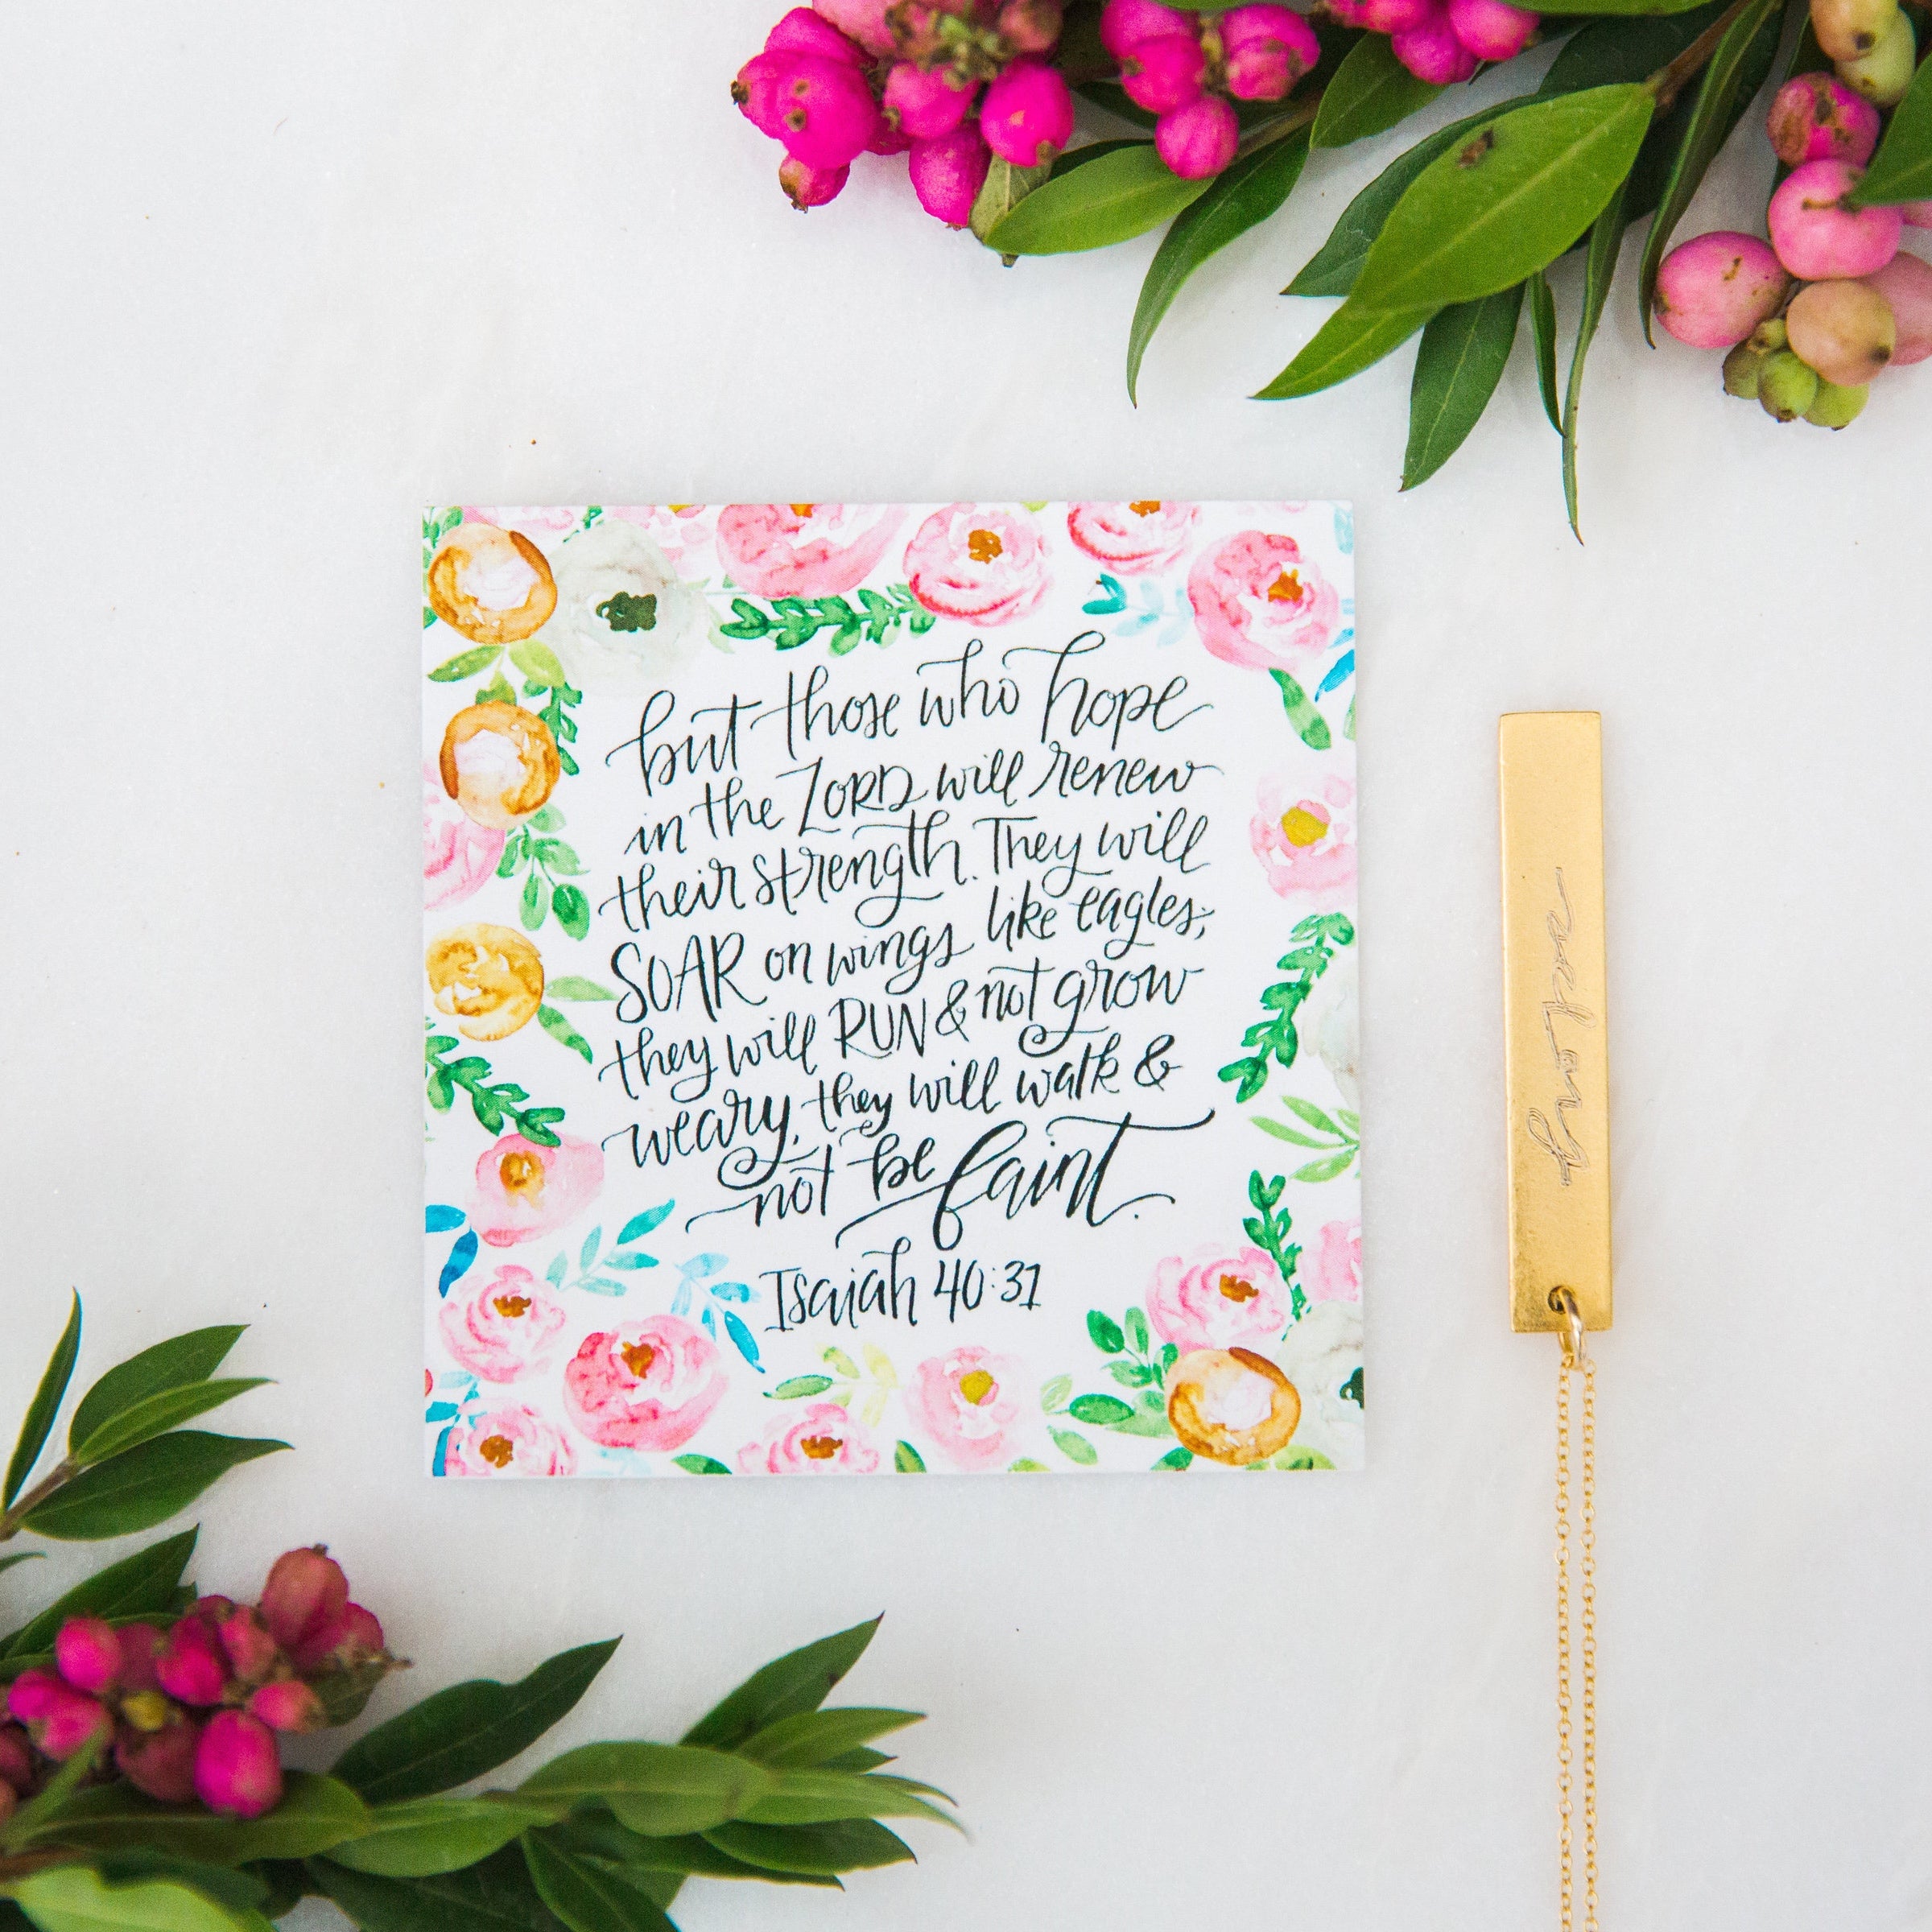 but those who hope
in the LORD will renew
their strength. They will
SOAR on wings like eagles;
they will RUN & not grow
weary, they will walk &
not be faint.
Isaiah 40:31